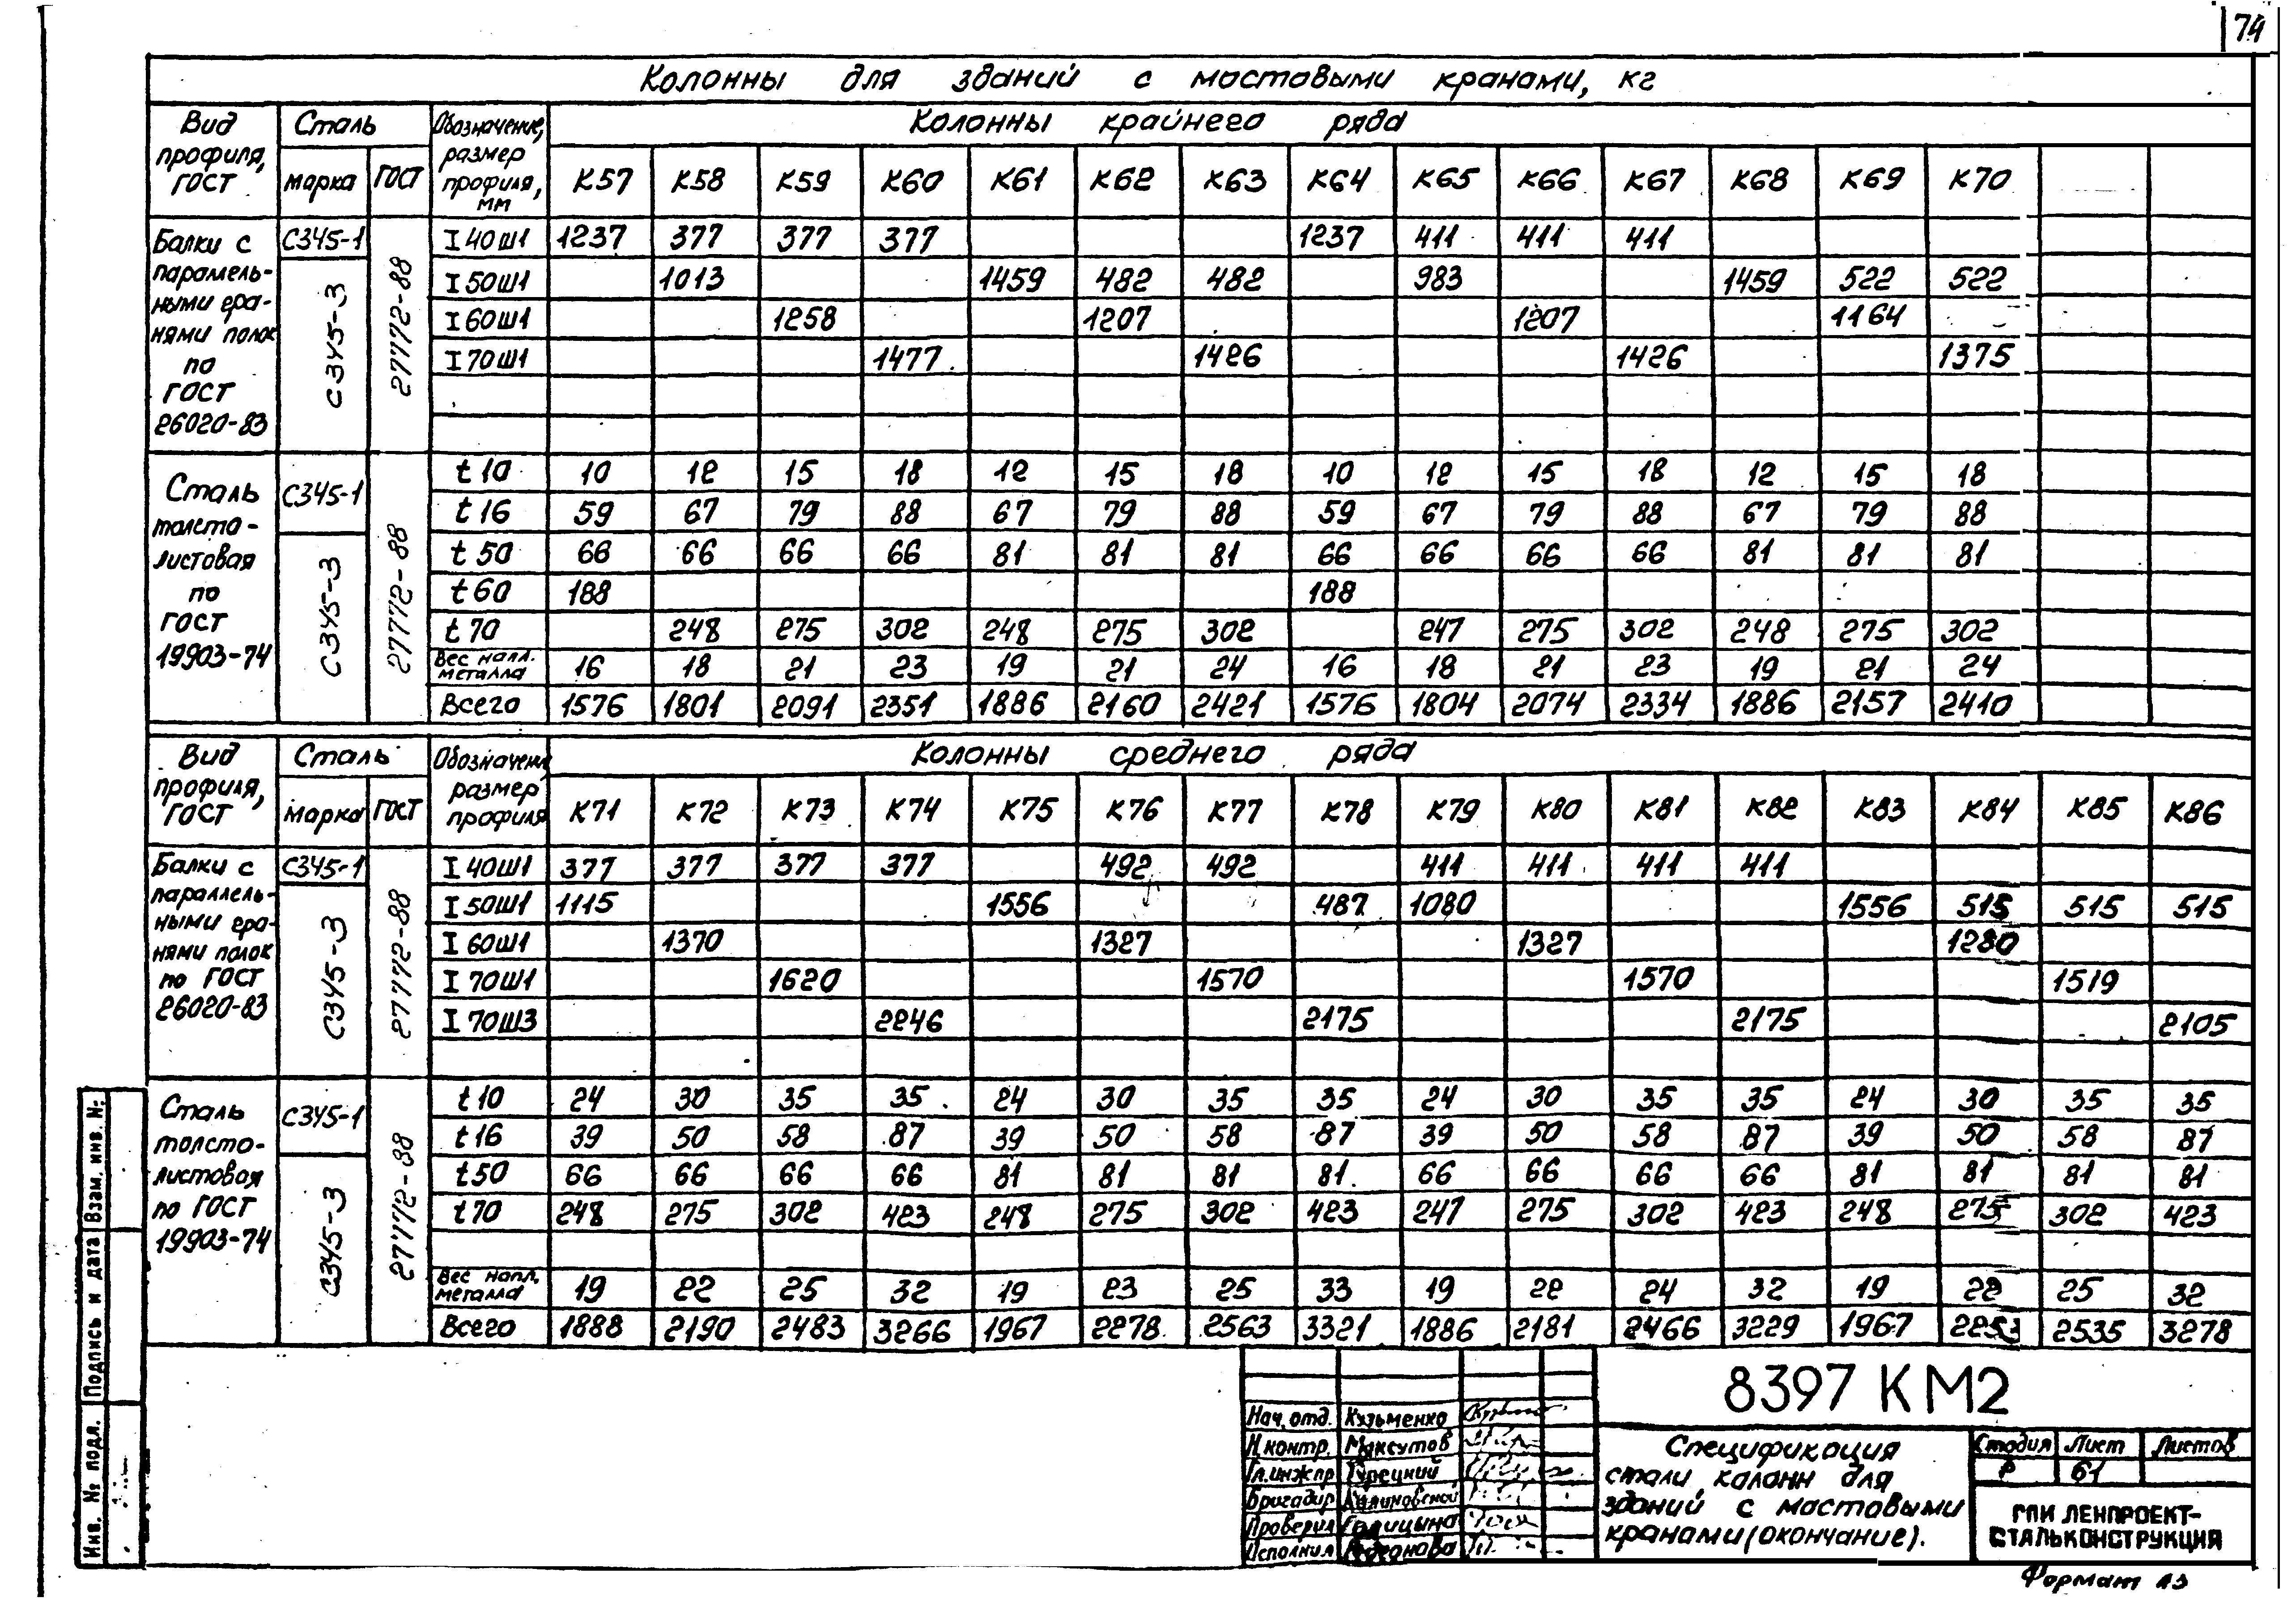 74
Колонны для зданий с мостовыми кранами, кг
Вид профиля, ГОСТ Сталь Обозначение, размер профиля, мм Колонны крайнего ряда
марка ГОСТ К57 К58 К59 К60 К61 К62 К63 К64 К65 К66 К67 К68 К69 К70
Балки с параллельными гранями полок по ГОСТ 26020-83
С345-1
С345-3
27772-88
I 40Ш1 1237 377 377 377 1237 411 411 411
I 50Ш1 1013 1459 482 482 983 1459 522 522
I 60Ш1 1258 1207 1207 1164
I 70Ш1 1477 1426 1426 1375
Сталь толстолистовая по ГОСТ 19903-74
С345-1
С345-3
27772-88
t 10 10 12 15 18 12 15 18 10 12 15 18 12 15 18
t 16 59 67 79 88 67 79 88 59 67 79 88 67 79 88
t 50 66 66 66 66 81 81 81 66 66 66 66 81 81 81
t 60 188 188
t 70 248 275 302 248 275 302 247 275 302 248 275 302
Вес напл. металла 16 18 21 23 19 21 24 16 18 21 23 19 21 24
Всего 1576 1801 2091 2351 1886 2160 2421 1576 1804 2074 2334 1886 2157 2410
Вид профиля, ГОСТ Сталь Обозначени размер профиля Колонны среднего ряда
марка ГОСТ К71 К72 К73 К74 К75 К76 К77 К78 К79 К80 К81 К82 К83 К84 К85 К86
Балки с параллельными гранями полок по ГОСТ 26020-83
С345-1
С345-3
27772-88
I 40Ш1 377 377 377 377 492 492 411 411 411 411
I 50Ш1 1115 1556 487 1080 1556 515 515 515
I 60Ш1 1370 1327 1327 1280
I 70Ш1 1620 1570 1570 1519
I 70Ш3 2246 2175 2175 2105
Сталь толстолистовая по ГОСТ 19903-74
С345-1
С345-3
27772-88
t 10 24 30 35 35 24 30 35 35 24 30 35 35 24 30 35 35
t 16 39 50 58 87 39 50 58 87 39 50 58 87 39 50 58 87
t 50 66 66 66 66 81 81 81 81 66 66 66 66 81 81 81 81
t 70 248 275 302 423 248 275 302 423 247 275 302 423 248 275 302 423
Вес напл. металла 19 22 25 32 19 23 25 33 19 22 24 32 19 22 25 32
Всего 1888 2190 2483 3266 1967 2278 2563 3321 1886 2181 2466 3229 1967 2253 2535 3278
Инв. № подл. Подпись и дата Взам. инв. №
8397 КМ2
Нач. отд. Кузьменко
Н. контр. Максутов
Гл.инж.пр Турецкий
Бригадир
Проверил Голицына
Исполнил
Спецификация
стали колонн для
зданий с мостовыми
кранами (окончание).
Стадия Лист Листов
Р 61
ГПИ ЛЕНПРОЕКТ-
СТАЛЬКОНСТРУКЦИЯ
Формат А3